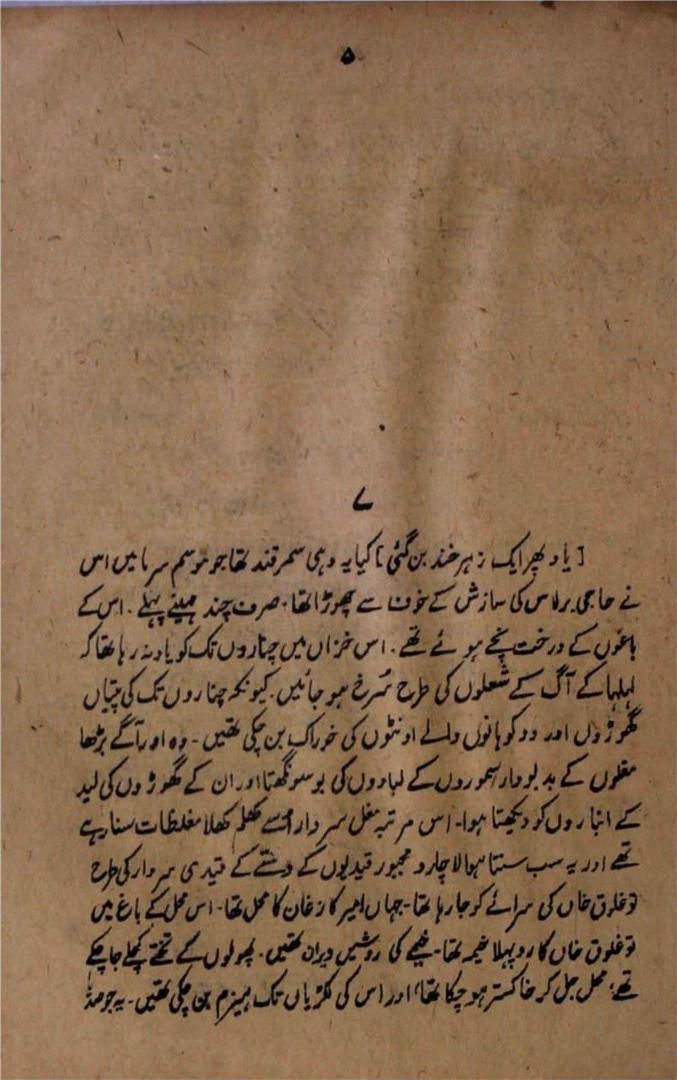 ۵
۷
[یاد پھر ایک زہر خند بن گئی] کیا یہ وہی سمرقند تھا جو موسم سرما میں اس
نے حاجی برلاس کی سازش کے خوف سے چھوڑا تھا۔ صرف چند مہینے پہلے۔ اس کے
باغوں کے درخت نچے ہوئے تھے۔ اس خزاں میں چناروں تک کو یاد نہ رہا تھا کہ
لہلہا کے آگ کے شعلوں کی طرح سُرخ ہو جائیں۔ کیونکہ چناروں تک کی پتیاں
گھوڑوں اور دو کوہانوں والے اونٹوں کی خوراک بن چکی تھیں۔ وہ اور آگے بڑھا
مغلوں کے بدبودار سموروں کے لبادوں کی بو سونگھتا اور ان کے گھوڑوں کی لید
کے انباروں کو دیکھتا ہوا۔ اس مرتبہ مغل سردار اُسے کھلم کھلا مغلظات سنا رہے
تھے اور یہ سب سنتا ہوا لاچار و مجبور قیدیوں کے دستے کے قیدی سردار کی طرح
توغلوق خاں کی سرائے کو جا رہا تھا۔ جہاں امیر کازغان کا محل تھا۔ اس محل کے باغ میں
توغلوق خاں کا روپہلا خیمہ تھا۔ خیمے کی روشیں ویران تھیں۔ پھولوں کے تختے کچلے جا چکے
تھے، محل جل کر خاکستر ہو چکا تھا، اور اس کی لکڑیاں تک ہیزم بن چکی تھیں۔ یہ جو